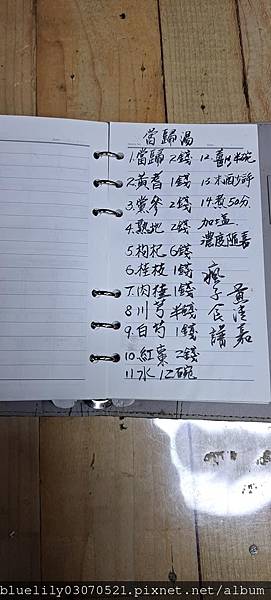 當歸湯
1.當歸 2錢
2.黃耆 1錢
3.黨參 2錢
4.熟地 2錢
5.枸杞 6錢
6.桂枝 1錢
7.肉桂 1錢
8.川芎 半錢
9.白芍 1錢
10.紅棗 2錢
11.水 12碗
12.薑 半碗
13.米酒
14.煮50分
加鹽
濃度隨喜
瘋子食譜
黃清嘉
bluelily03070521.pixnet.net/album